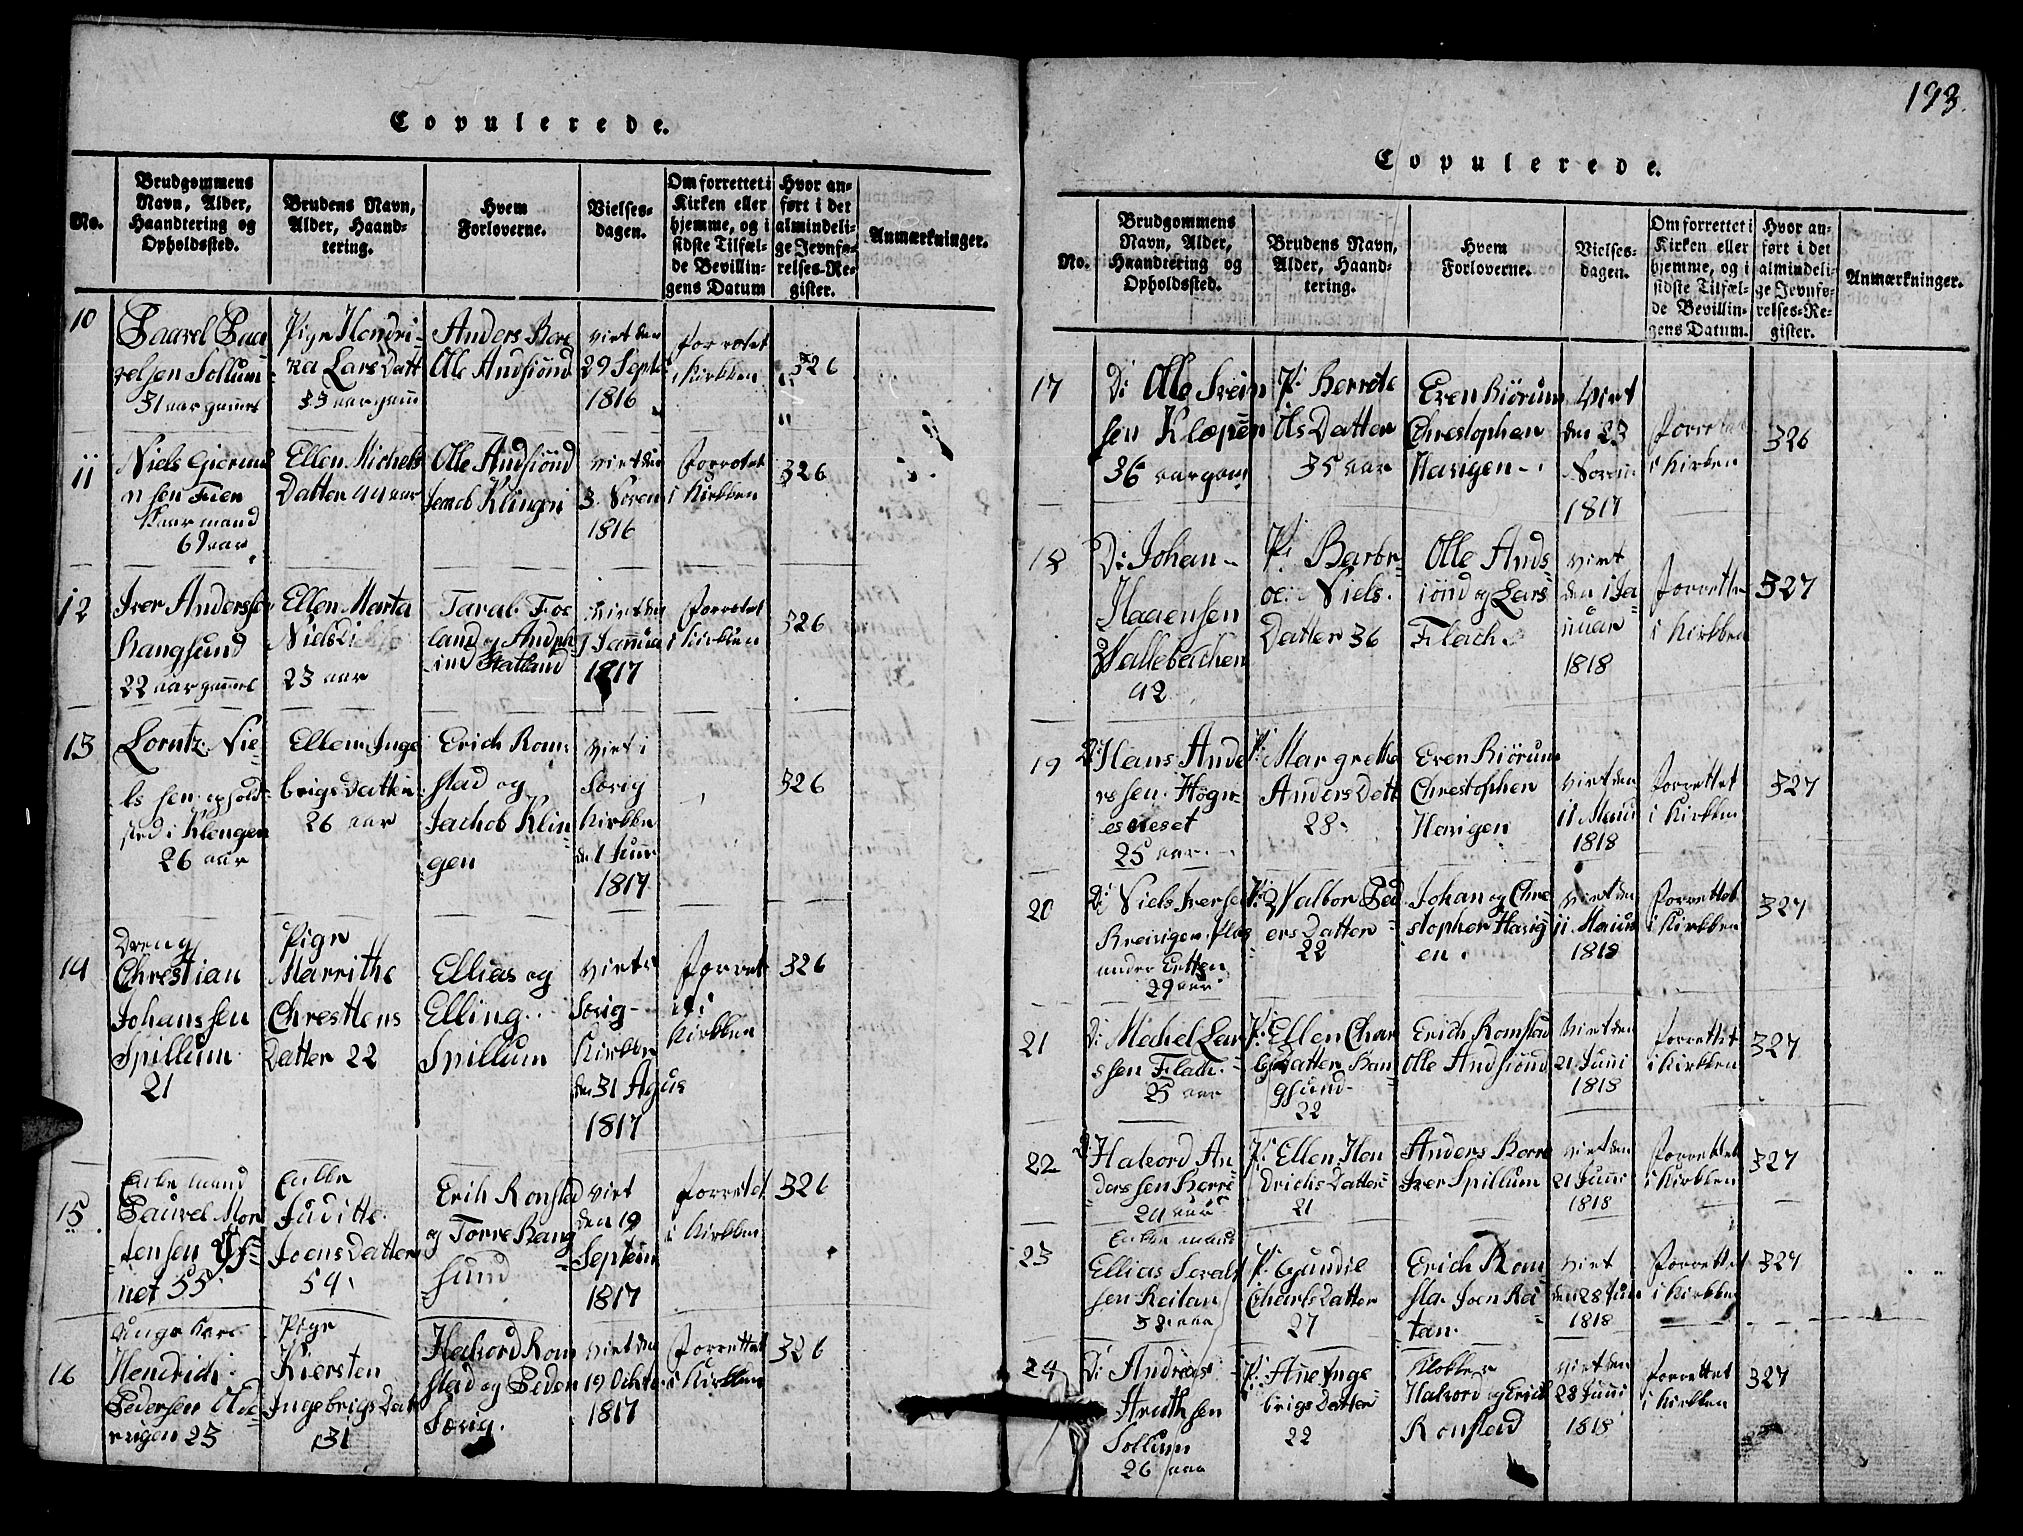 Copulerede.
No.
Brudgommens
Navn, Alder,
Haandtering og
Opholdssted.
Brudens Navn,
Alder, Haand-
tering.
Hvem
Forloverne.
Vielses-
dagen.
Om forrettet i
Kirken eller
hjemme, og i
sidste Tilfæl-
de Bevillin-
gens Datum
Hvor an-
ført i det
almindeli-
ge Jevnfø-
relses-Re-
gister.
Anmærkninger.
10
Paavel Paa
velsen Sollum
31 aar gamel
Pige Hendri-
ka Lars Datt
33 aar gam̄
Anders Bore
Olle Andsiønd
viet den
29 Septe
1816
forretet
i Kirkken
326
11
Niels
sen Fier
mand
69 aar
Ellen Michels
Datter 44 aar
Olle Andsiønd
Jacob Klingen
viet den
3 Noven
1816
forretet
i Kirkken
326
12
Iver Anderssen
Rangsund
22 aar gamel
Ellen Marta
Niels
23 aar
Taral Foe
land og Anders
viet den
1 Januar
1817
forretet
i Kirkken
326
13
Lorntz Nie-
ls sen ophold-
sted i Klengen
26 aar
Ellen Inge
brigs Datter
26 aar
Erich Rom
stad og
Jachob Klin-
gen
viet i
Særig
Kirkken
den 1 Juni
1817
326
14
Dreng
Chrestian
Johanssen
Spillum
21
Pige
Marrithe
Chresttens
Datter 22
Ellias og
Elling
Spillum
viet i
Særig-
Kirkken
den 31 Agus
1817
forret
et i
Kirkken
326
15
Enke mand
Pauvel Mor
tensen
net 55
Enkke
Juditte
Joens Datter
54
Erich Romstad
og Torre Rang
sund
viet
den 19
Septem
1817
forretet
i Kirkken
326
16
Unge Karl
Hendrich
Pedersen
vigen 23
Pige
Kiersten
Ingebrigs Dat
31
Halvord Rom
stad og Peder
Særig.
viet den
19 Ochto
1817
forrettet
i Kirkken
326
193.
Copulerede.
No.
Brudgommens
Navn, Alder,
Haandtering og
Opholdssted.
Brudens Navn,
Alder, Haand-
tering.
Hvem
Forloverne.
Vielses-
dagen.
Om forrettet i
Kirken eller
hjemme, og i
sidste Tilfæl-
de Bevillin-
gens Datum.
Hvor an-
ført i det
almindeli-
ge Jevnfø-
relses-Re-
gister.
Anmærkninger.
17
D: Olle Svein
sen Klopen
36 aar gam
P: Berrete
Ols Datter
35 aar
Even Biørum
Chrestopher
Havigen
viet
den 23
Novem
1817
forretet
i Kirken
326
18
D: Johan
Haaensen
42
P: Barbr-
oe Niels
Datter 36
Olle Ands
iønd og Lars
Flach
viet
den 1 Ja-
nuar
1818
forrettet
i Kirkken
327
19
D: Hans Ande
rssen Högn-
esneset
25 aar
P: Margrethe
Anders Datt
28
Even Biørum
Chrestopher
Havigen
viet den
11 Maii
1818
forrettet
i Kirkken
327
20
D: Niels Iversen
under Ietten
29 aar
P: Valbor Ped
ers Datter
22
Johan og Chre
stopher Havig
en.
viet den
11 Maius
1818
forrettet
i Kirkken
327
21
D: Mechel Lar
ssen Flach
25 aar
P: Ellen Char
Datter Ran
gsund
22
Erich Romstad
Olle Andsiønd
viet den
21 Junii
1818
forrettet
i Kirkken
327
22
D: Halvord An
derssen Borre
24 aar
P: Ellen Hen
Drichs Datter
21
Anders Borre
Iver Spillum
viet den
21 Junii
1818
forrettet
i Kirkken
327
23
Enke mand
Ellias Sevalt
sen Reitan
58 aar
P: Gundil
Charls Datter
27
Erich Rom
sta. Joen Rei
tan.
viet
den 28 Juni
1818
forrettet
i Kirkken
327
24
D: Andreas
Aruthsen
Sollum
26 aar
P: Ane Inge
brigs Datter
22
Klokker
Halvord og Erich
Romstad
viet den
28 Junii
1818
forrettet
i Kirkken
327